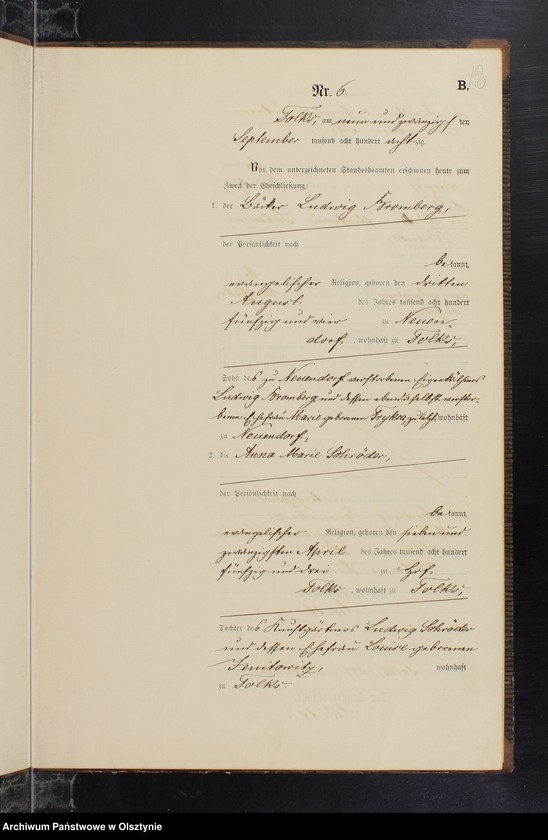 B.
Nr. 6.
Tolks, am neun und zwanzigsten
September tausend acht hundert achtzig
Vor dem unterzeichneten Standesbeamten erschienen heute zum
Zweck der Eheschließung:
1. der Bäcker Ludwig Bromberg,
der Persönlichkeit nach
bekannt,
evangelischer Religion, geboren den dritten
August des Jahres tausend acht hundert
fünfzig und vier zu Neuen
dorf, wohnhaft zu Tolks,
Sohn des zu Neuendorf verstorbenen Eigenkäthners
Ludwig Bromberg und dessen ebendaselbst verstor-
benen Ehefrau Marie geborenen zuletzt wohnhaft
zu Neuendorf,
2. die Anna Marie Schröder,
der Persönlichkeit nach
bekannt,
evangelischer Religion, geboren den sieben und
zwanzigsten April des Jahres tausend acht hundert
fünfzig und drei zu Hof
Tolks, wohnhaft zu Tolks,
Tochter des Kunstgärtners Ludwig Schröder
und dessen Ehefrau Louise geborenen
wohnhaft
zu Tolks.
Archiwum Państwowe w Olsztynie